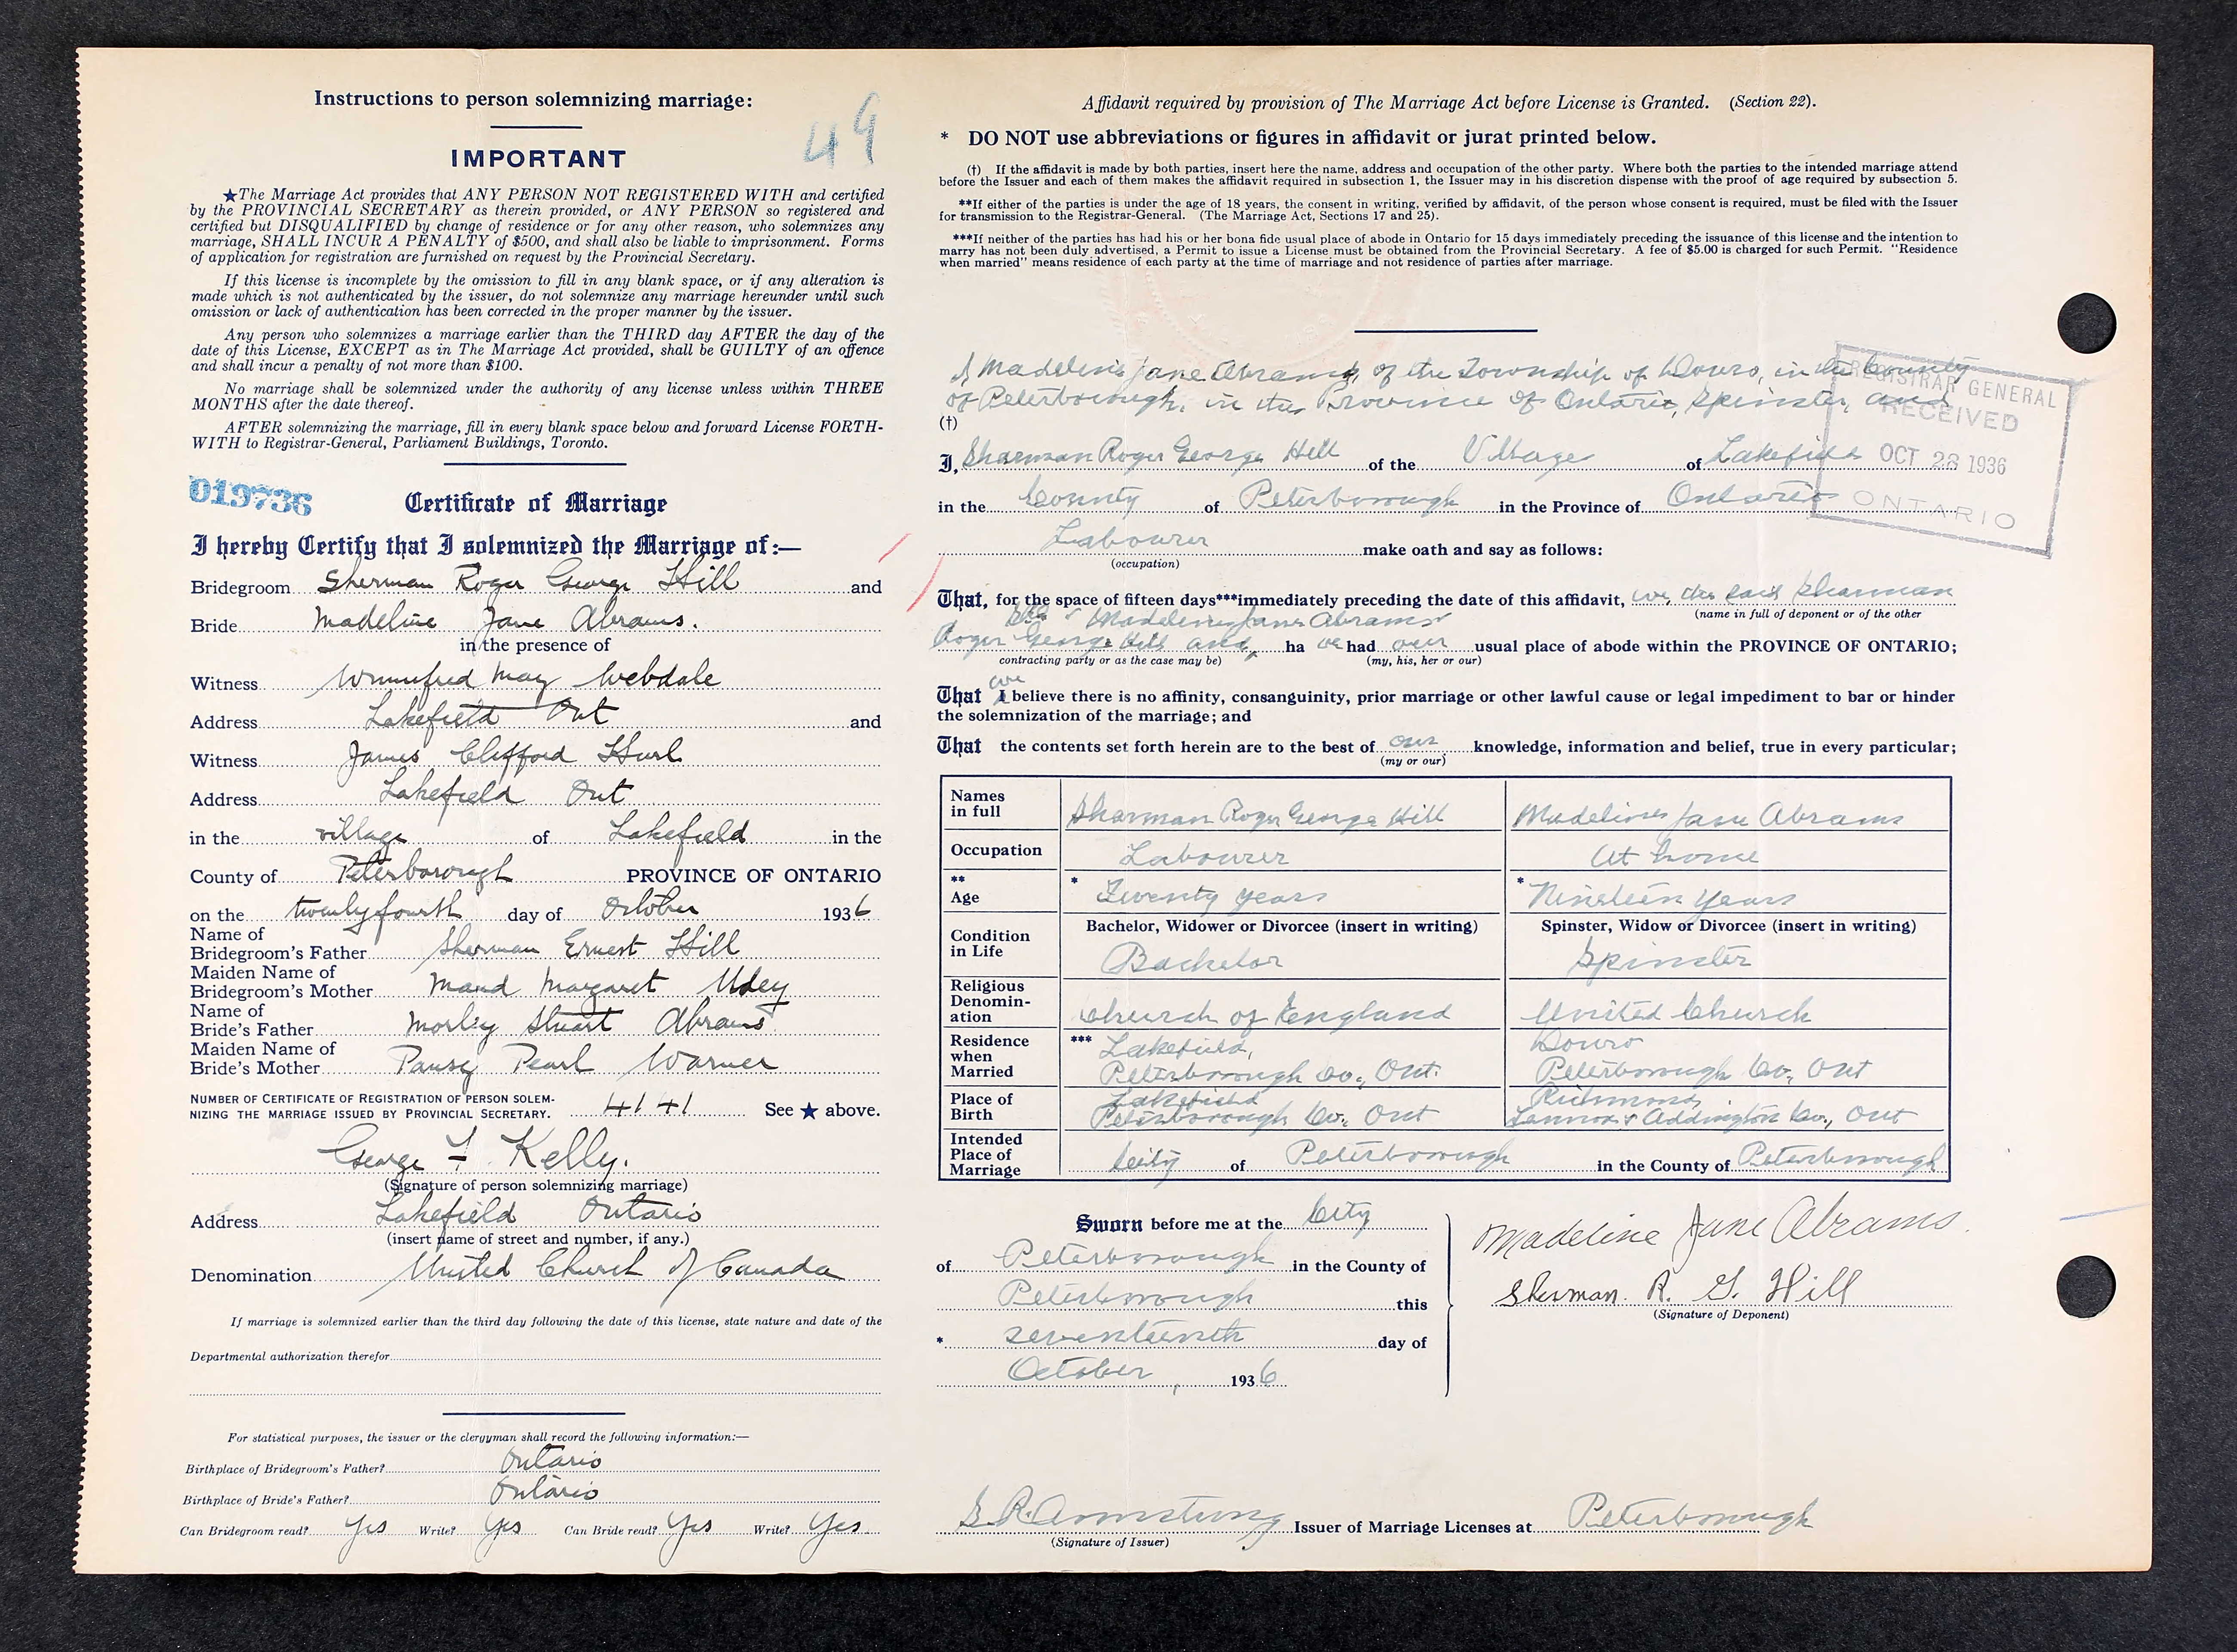 Instructions to person solemnizing marriage:
49
IMPORTANT
★The Marriage Act provides that ANY PERSON NOT REGISTERED WITH and certified
by the PROVINCIAL SECRETARY as therein provided, or ANY PERSON so registered and
certified but DISQUALIFIED by change of residence or for any other reason, who solemnizes any
marriage, SHALL INCUR A PENALTY of $500, and shall also be liable to imprisonment. Forms
of application for registration are furnished on request by the Provincial Secretary.
If this license is incomplete by the omission to fill in any blank space, or if any alteration is
made which is not authenticated by the issuer, do not solemnize any marriage hereunder until such
omission or lack of authentication has been corrected in the proper manner by the issuer.
Any person who solemnizes a marriage earlier than the THIRD day AFTER the day of the
date of this License, EXCEPT as in The Marriage Act provided, shall be GUILTY of an offence
and shall incur a penalty of not more than $100.
No marriage shall be solemnized under the authority of any license unless within THREE
MONTHS after the date thereof.
AFTER solemnizing the marriage, fill in every blank space below and forward License FORTH-
WITH to Registrar-General, Parliament Buildings, Toronto.
019736
Certificate of Marriage
I hereby Certify that I solemnized the Marriage of:—
Bridegroom Sherman Roger George Hill and
Bride Madeline Jane Abrams.
in the presence of
Witness Winnifred May Webdale
Address Lakefield Ont and
Witness James Clifford Hurl
Address Lakefield Ont
in the village of Lakefield in the
County of Peterborough PROVINCE OF ONTARIO
on the twenty fourth day of October 1936
Name of
Bridegroom's Father Sherman Ernest Hill
Maiden Name of
Bridegroom's Mother Maud Margaret Udey
Name of
Bride's Father Morley Stuart Abrams
Maiden Name of
Bride's Mother Pansy Pearl Warner
NUMBER OF CERTIFICATE OF REGISTRATION OF PERSON SOLEM-
NIZING THE MARRIAGE ISSUED BY PROVINCIAL SECRETARY. 4141 See ★ above.
George F Kelly.
(Signature of person solemnizing marriage)
Address Lakefield Ontario
(insert name of street and number, if any.)
Denomination United Church of Canada
If marriage is solemnized earlier than the third day following the date of this license, state nature and date of the
Departmental authorization therefor
For statistical purposes, the issuer or the clergyman shall record the following information:—
Birthplace of Bridegroom's Father? Ontario
Birthplace of Bride's Father? Ontario
Can Bridegroom read? Yes Write? Yes Can Bride read? Yes Write? Yes
Affidavit required by provision of The Marriage Act before License is Granted. (Section 22).
* DO NOT use abbreviations or figures in affidavit or jurat printed below.
(†) If the affidavit is made by both parties, insert here the name, address and occupation of the other party. Where both the parties to the intended marriage attend
before the Issuer and each of them makes the affidavit required in subsection 1, the Issuer may in his discretion dispense with the proof of age required by subsection 5.
**If either of the parties is under the age of 18 years, the consent in writing, verified by affidavit, of the person whose consent is required, must be filed with the Issuer
for transmission to the Registrar-General. (The Marriage Act, Sections 17 and 25).
***If neither of the parties has had his or her bona fide usual place of abode in Ontario for 15 days immediately preceding the issuance of this license and the intention to
marry has not been duly advertised, a Permit to issue a License must be obtained from the Provincial Secretary. A fee of $5.00 is charged for such Permit. "Residence
when married" means residence of each party at the time of marriage and not residence of parties after marriage.
I Madeline Jane Abrams, of the Township of Douro, in the County
of Peterborough, in the Province of Ontario, Spinster, and
(†)
REGISTRAR GENERAL
RECEIVED
OCT 28 1936
ONTARIO
I, Sharman Roger George Hill of the Village of Lakefield
in the County of Peterborough in the Province of Ontario
Labourer make oath and say as follows:
(occupation)
That, for the space of fifteen days***immediately preceding the date of this affidavit, we, the said Sharman
(name in full of deponent or of the other
Madeline Jane Abrams
Roger George Hill and ha ve had our usual place of abode within the PROVINCE OF ONTARIO;
contracting party or as the case may be) (my, his, her or our)
we
That I believe there is no affinity, consanguinity, prior marriage or other lawful cause or legal impediment to bar or hinder
the solemnization of the marriage; and
That the contents set forth herein are to the best of our knowledge, information and belief, true in every particular;
(my or our)
Names
in full Sharman Roger George Hill Madeline Jane Abrams
Occupation Labourer At home
** Age * Twenty years * Nineteen Years
Condition
in Life
Bachelor, Widower or Divorcee (insert in writing) Spinster, Widow or Divorcee (insert in writing)
Bachelor Spinster
Religious
Denomin-
ation Church of England United Church
Residence
when
Married *** Lakefield, Douro
Peterborough Co., Ont. Peterborough Co., Ont
Place of
Birth Lakefield Richmond,
Peterborough Co., Ont Lennox & Addington Co., Ont
Intended
Place of
Marriage City of Peterborough in the County of Peterborough
Sworn before me at the City
of Peterborough in the County of
Peterborough this
* seventeenth day of
October, 1936
Madeline Jane Abrams.
Sherman. R. G. Hill
(Signature of Deponent)
G. R. Armstrong Issuer of Marriage Licenses at Peterborough
(Signature of Issuer)